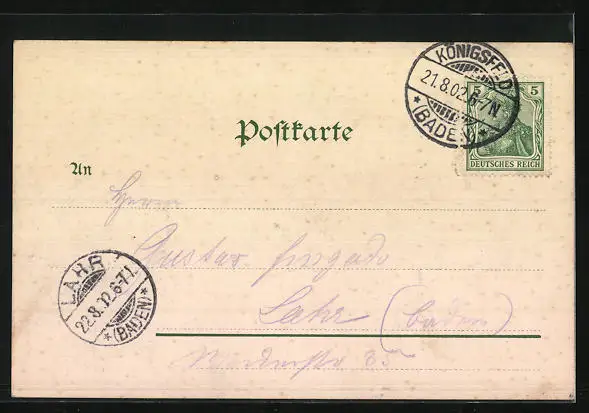 KÖNIGSFELD
21.8.02.6-7N.
* (BADEN) *
5 5
DEUTSCHES REICH
Postkarte
An
Herrn
Gustav
Lahr (Baden)
35
LAHR
22.8.02.6-7V.
* (BADEN) *